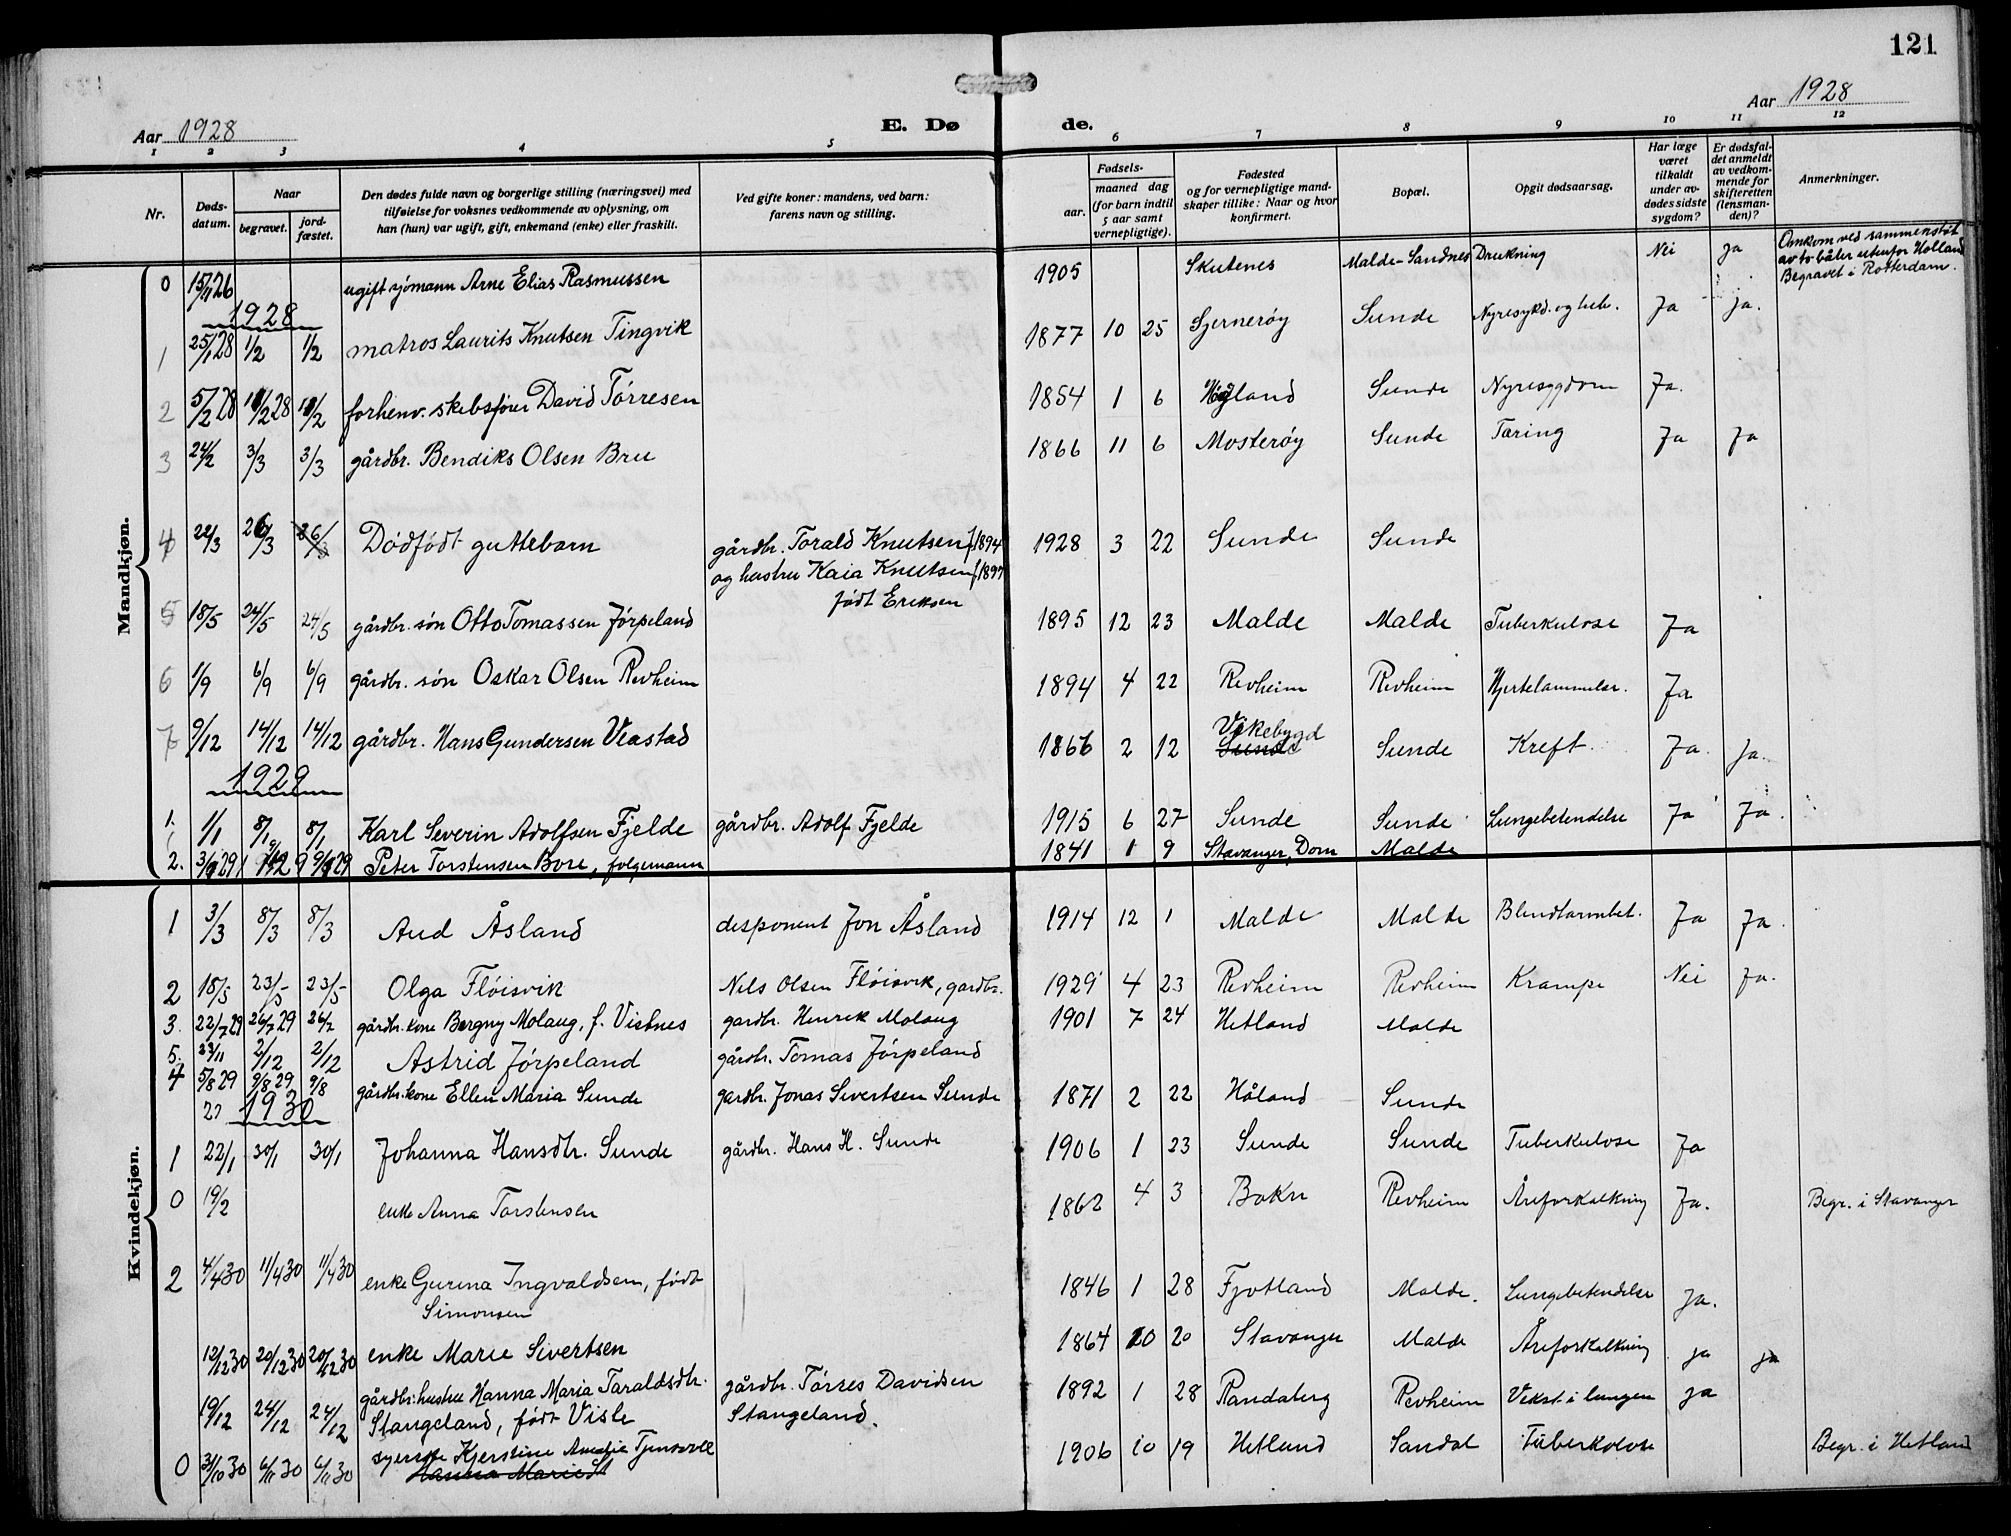 121
Aar 1928
E. Døde.
Aar 1928
1 2 3 4 5 6 7 8 9 10 11 12
Nr.
Dødsdatum.
Naar
begravet.
jordfæstet.
Den dødes fulde navn og borgerlige stilling (næringsvei) med
tilføielse for voksnes vedkommende av oplysning, om
han (hun) var ugift, gift, enkemand (enke) eller fraskilt.
Ved gifte koner: mandens, ved barn:
farens navn og stilling.
Fødsels-
aar.
maaned dag
(for barn indtil
5 aar samt
vernepligtige).
Fødested
og for vernepligtige mand-
skaper tillike: Naar og hvor
konfirmert.
Bopæl.
Opgit dødsaarsag.
Har læge
været
tilkaldt
under av-
dødes sidste
sygdom?
Er dødsfal-
det anmeldt
av vedkom-
mende for
skifteretten
(lensman-
den)?
Anmerkninger.
Mandkjøn.
0 15/11 26 ugift sjømann Arne Elias Rasmussen 1905 Skutenes Malde-Sandnes Drukning Nei Ja Omkom ved sammenstøt
av to båter utenfor Holland
Begravet i Rotterdam.
1928
1 25/1 28 1/2 1/2 matros Laurits Knutsen Tingvik 1877 10 25 Sjernerøy Sunde Nyresykd. og Ja Ja.
2 5/2 28 /2 28 /2 forhenv. skibsfører David Tørresen 1854 1 6 Høgland Sunde Nyresygdom Ja.
3 24/2 3/3 3/3 gårdbr. Bendiks Olsen Bru 1866 11 6 Mosterøy Sunde Tæring Ja Ja
4 22/3 26/3 26/3 Dødfødt guttebarn gårdbr. Torald Knutsen f. 1894 1928 3 22 Sunde Sunde
og hustru Kaia Knutsen f. 1897
født Eriksen
5 18/5 24/5 24/5 gårdbr. søn Otto Tomassen Jørpeland 1895 12 23 Malde Malde Tuberkulose Ja
6 1/9 6/9 6/9 gårdbr. søn Oskar Olsen Revheim 1894 4 22 Revheim Revheim Hjertelammelse. Ja
7 9/12 14/12 14/12 gårdbr. Hans Gundersen Veastad 1866 2 12 Vikebygd Sunde Sunde Kreft Ja. Ja.
1929
1. 1/1 8/1 8/1 Karl Severin Adolfsen Fjelde gårdbr. Adolf Fjelde 1915 6 27 Sunde Sunde Lungebetendelse Ja Ja.
2. Peter Torstensen Bore, følgemann 1841 1 9 Stavanger, Dom Malde
Kvindekjøn.
1 3/3 8/3 8/3 Aud Åsland desponent Jon Åsland 1914 12 1 Malde Malde Blindtarmbet. Ja Ja.
2 18/5 23/5 23/5 Olga Fløisvik Nels Olsen Fløisvik, gardbr. 1929 4 23 Revheim Revheim Krampe Nei Ja.
3. 22/7 29 26/7 29 26/7 gårdbr. kone Bergny Molaug, f. Vistnes gardbr. Henrik Molaug 1901 7 24 Hetland Malde
5. 23/11 2/12 2/12 Astrid Jørpeland gårdbr. Tomas Jørpeland
4 5/8 29 9/8 29 9/8 gårdbr. kone Ellen Maria Sunde gardbr. Jonas Sivertsen Sunde 1871 2 22 Håland Sunde
22 1930
1 22/1 30/1 30/1 Johanna Hansdtr. Sunde gårdbr. Hans H. Sunde 1906 1 23 Sunde Sunde Tuberkulose Ja
0 19/2 enke Anna Torstensen 1862 4 3 Bokn Revheim Åreforkalkning Ja. Begr. i Stavanger
2 4/4 30 11/4 30 11/4 30 enke Gurina Ingvaldsen, født 1846 1 28 Fjotland Malde. Lungebetendelse Ja.
Simonsen
12/12 30 20/12 30 20/12 30 enke Marie Sivertsen 1864 10 20 Stavanger Malde Åreforkalkning Ja Ja
19/12 24/12 24/12 gårdbr. hustru Hanna Maria Taraldsdtr. gårdbr. Tørres Davidsen 1892 1 28 Randaberg Revheim Vekst i lungen Ja
Stangeland, født Viste Stangeland.
0 31/10 30 6/11 30 6/11 30 syerske Kjerstine Amalie Tjensvoll 1906 10 19 Hetland Sandal Tuberkolose Begr. i Hetland
Hanna Marie St